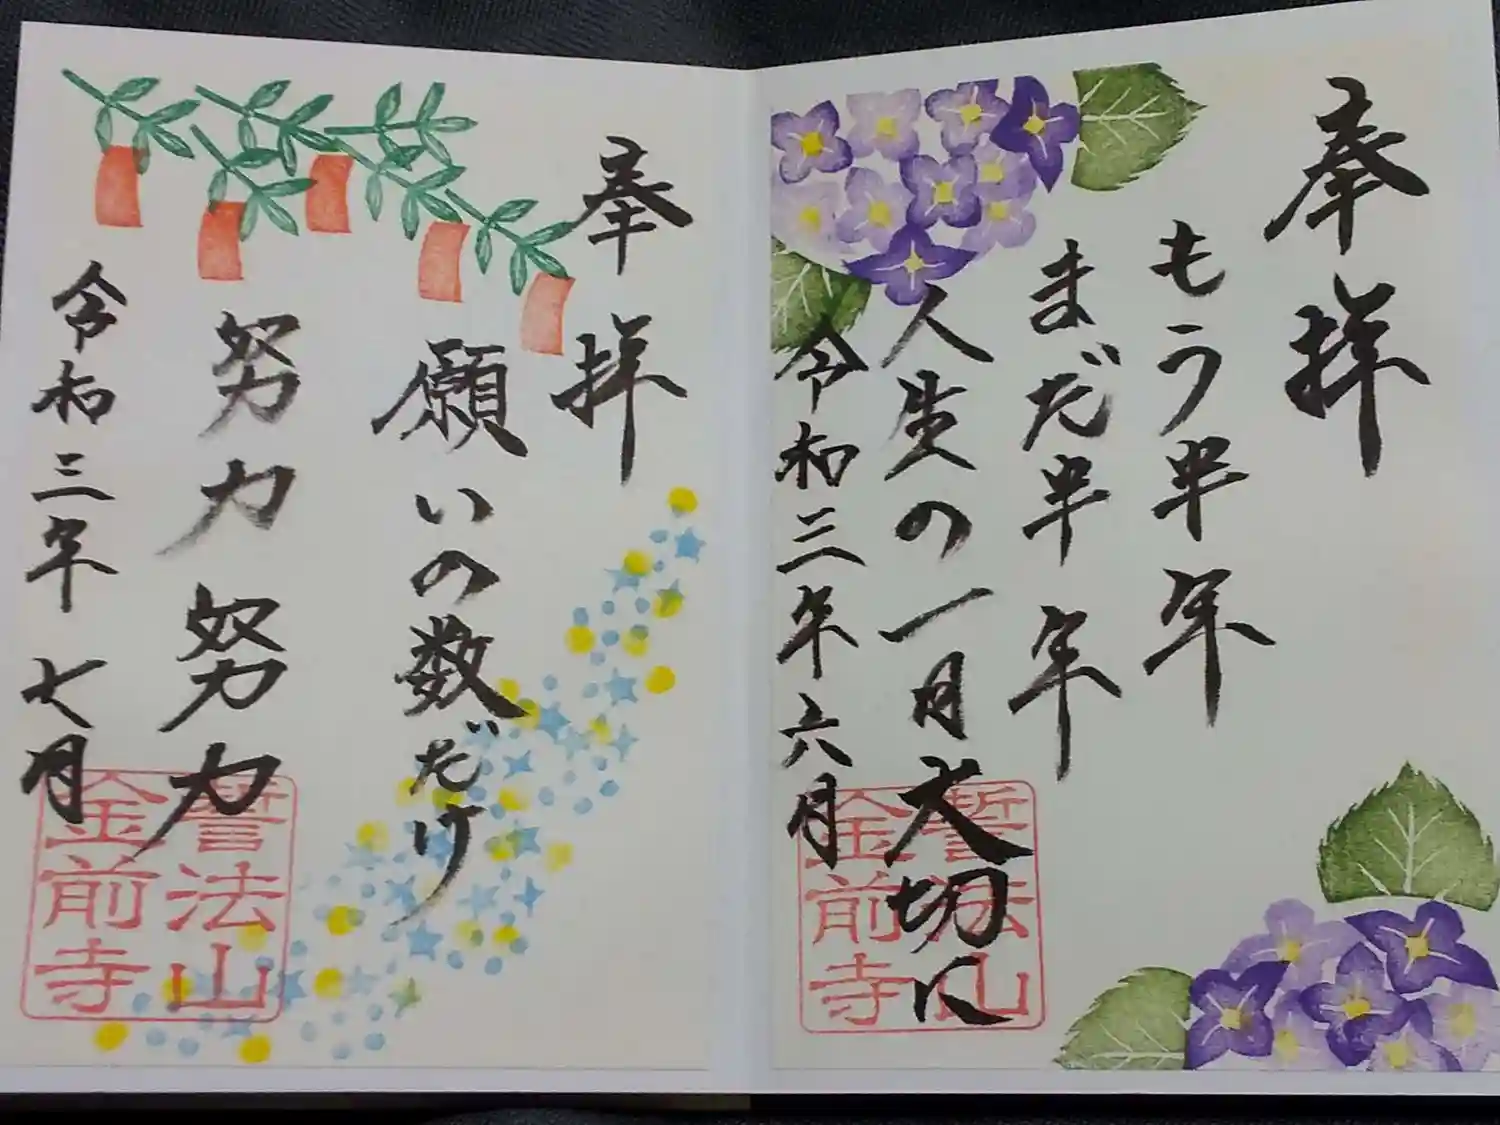 奉拝
もう半年
まだ半年
人生の一月大切に
令和三年六月
誓法山
金前寺
奉拝
願いの数だけ
努力努力
令和三年七月
誓法山
金前寺